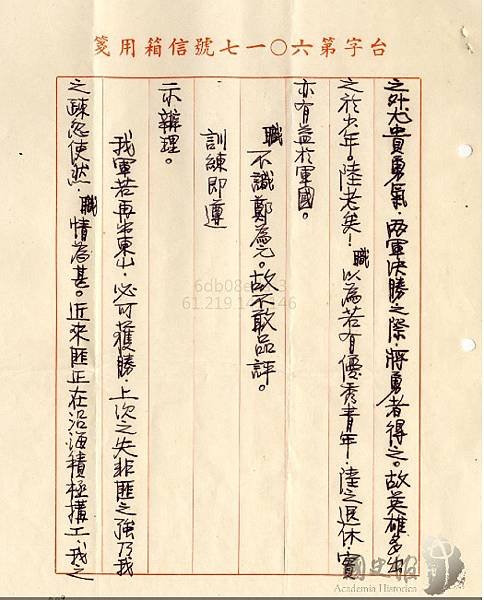 台字第六〇一七號信箱用箋
之外尤貴勇氣，兩軍決勝之際，將勇者得之。故英雄多出
之於少年。陸老矣！職以為若有優秀青年，陸之退休，實
亦有益於軍國。
職不識鄭為元。故不敢品評。
訓練即遵
示辦理。
我軍若再東山，必可獲勝，上次之失非匪之強乃我
之疎忽使然，職情為甚。近來匪正在沿海積極構工，我之
國史館
Academia Historica